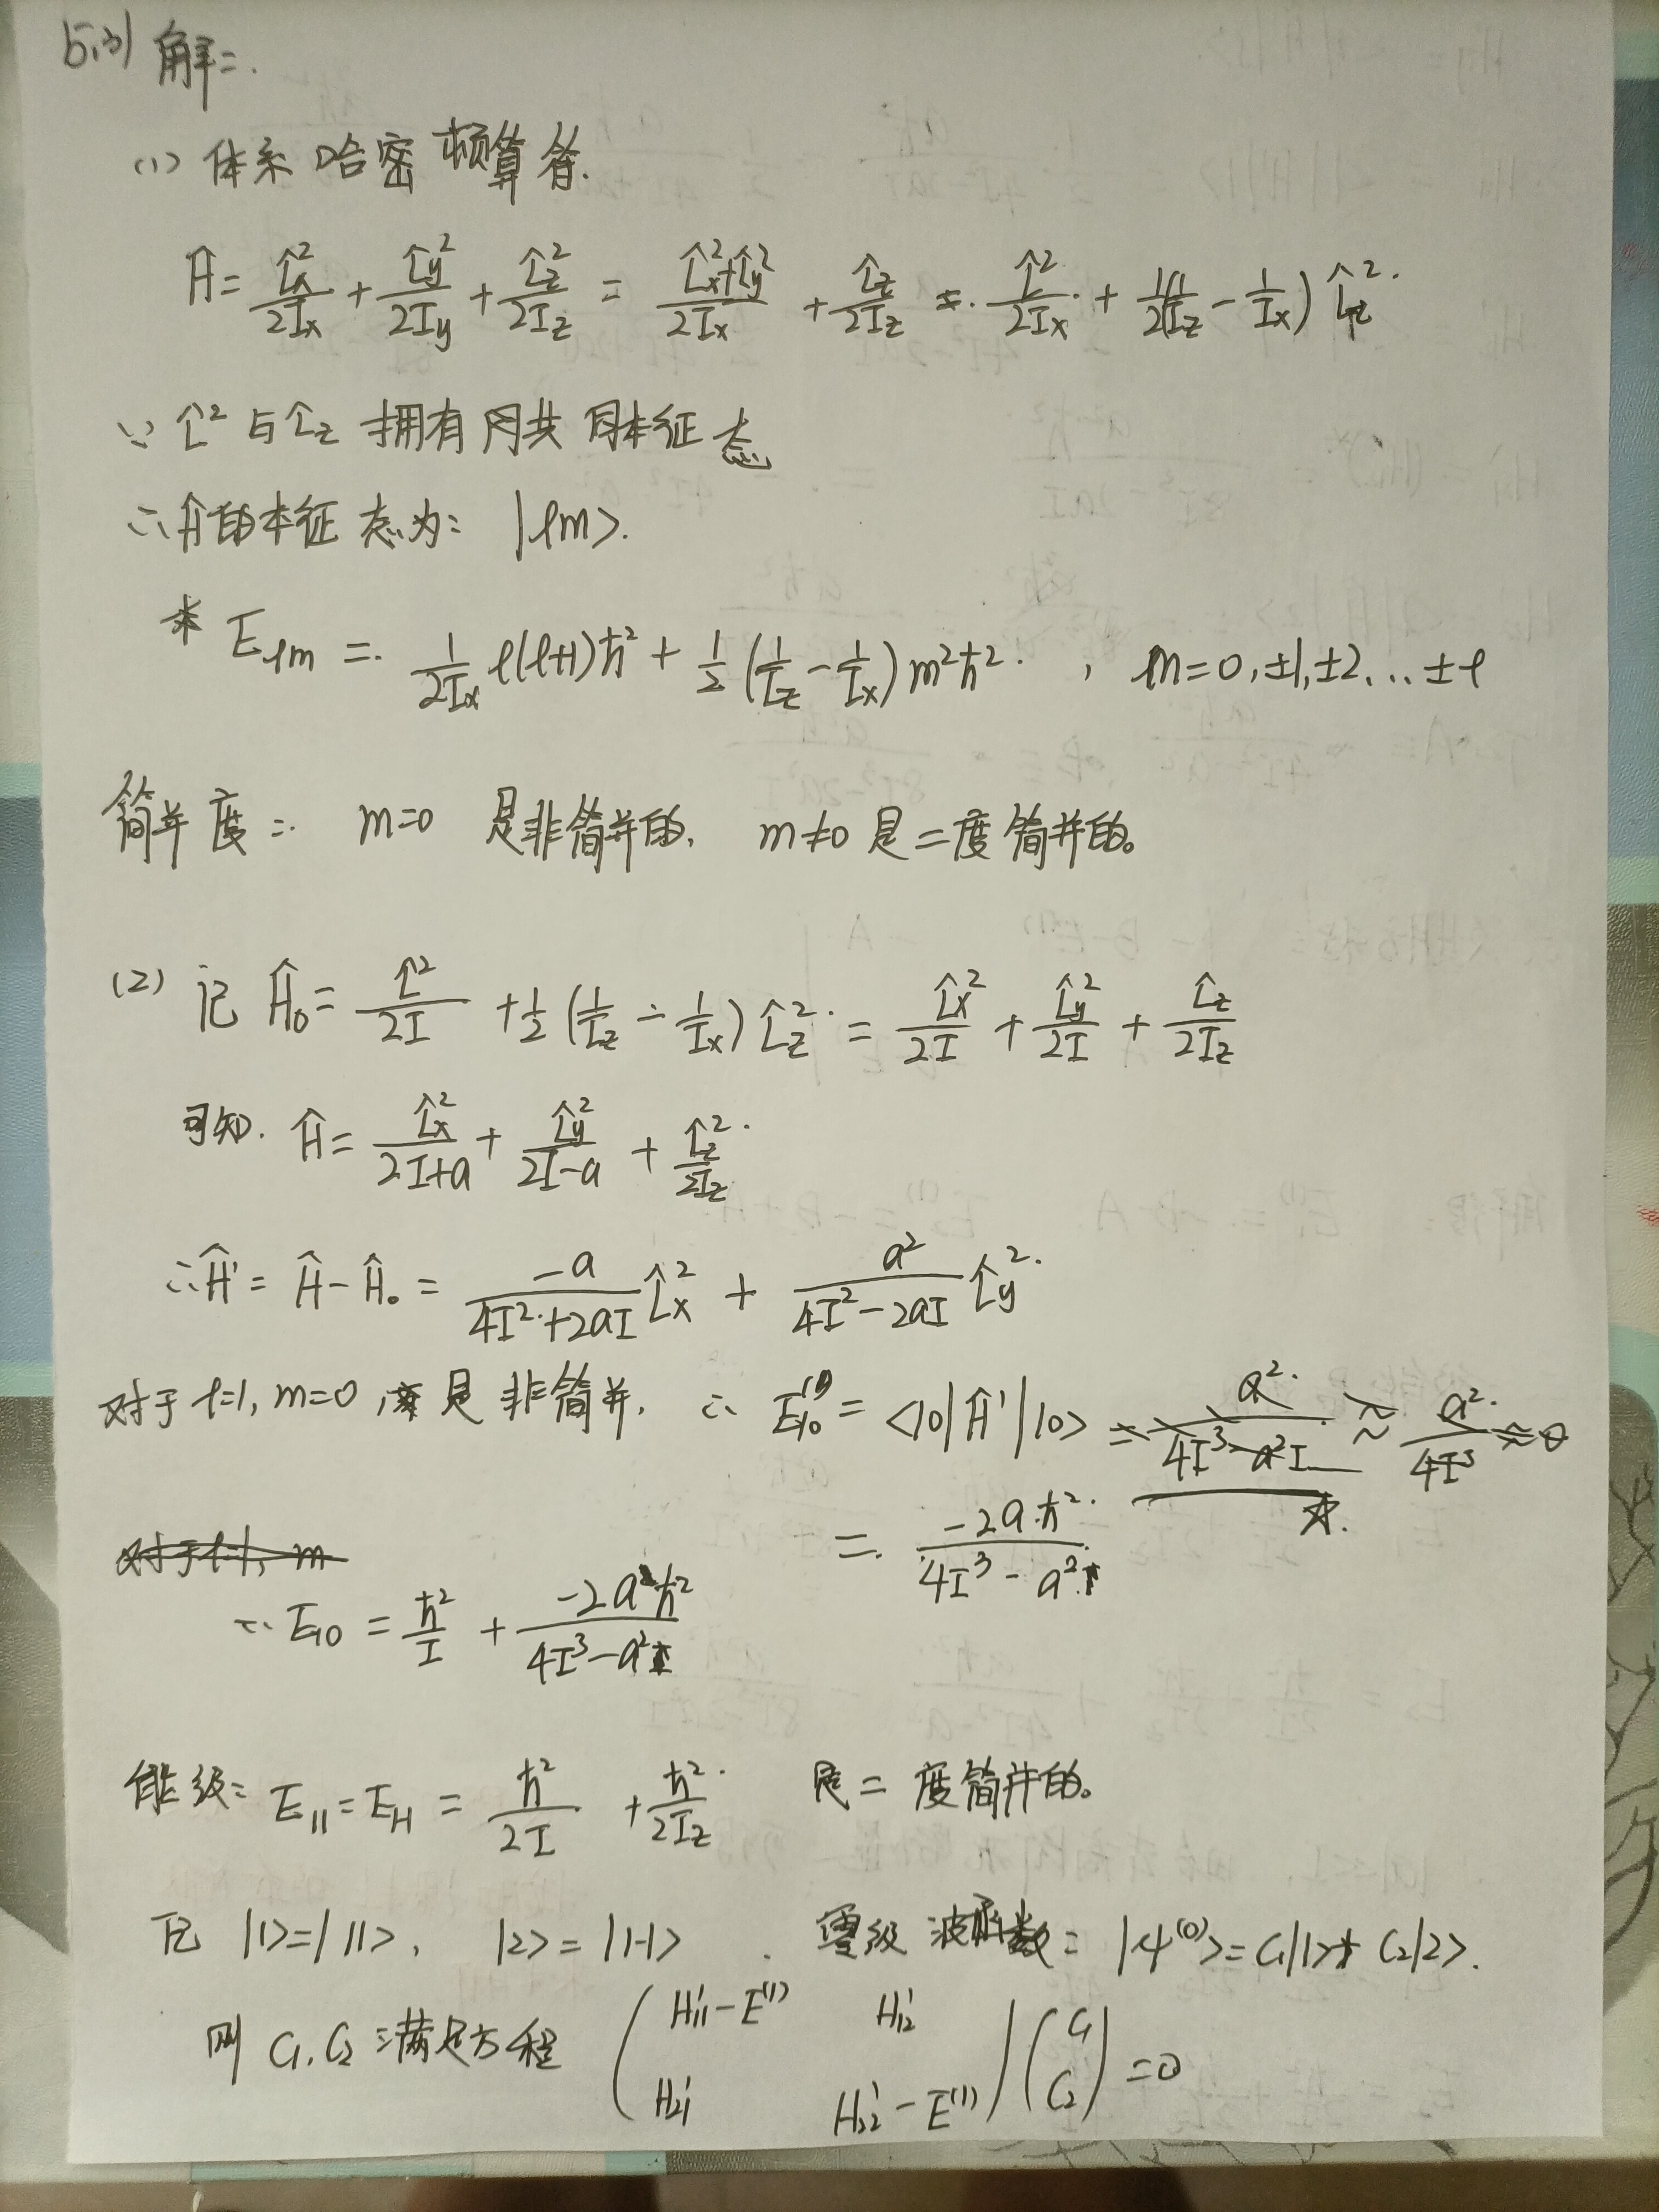 5.3) 解:
(1) 体系哈密顿算符.
Ĥ = L̂x²/2Ix + L̂y²/2Iy + L̂z²/2Iz = (L̂x²+L̂y²)/2Ix + L̂z²/2Iz = L̂²/2Ix + 1/2(1/Iz - 1/Ix) L̂z².
∵ L̂² 与 L̂z 拥有 共同本征态
∴ Ĥ的本征态为: |lm>.
* Elm = 1/2Ix l(l+1)ħ² + 1/2 (1/Iz - 1/Ix) m²ħ². , m=0,±1,±2...±l
简并度: m=0 是非简并的, m≠0 是二度简并的。
(2) 记 Ĥ₀ = L̂²/2I + 1/2 (1/Iz - 1/Ix) L̂z² = L̂x²/2I + L̂y²/2I + L̂z/2Iz
可知. Ĥ = L̂x²/2I+a + L̂y²/2I-a + L̂z²/2Iz
∴ Ĥ' = Ĥ - Ĥ₀ = -a/4I²+2aI L̂x² + a²/4I²-2aI L̂y².
对于 l=1, m=0 是非简并, ∴ E10⁽¹⁾ = <10|Ĥ'|10> = a²/4I³-a²I ≈ a²/4I³ ≈ 0
对于 l=1, m = -2a.ħ²/4I³-a²I
∴ E10 = ħ²/I + -2a²ħ²/4I³-a²I
能级: E11 = E1-1 = ħ²/2I + ħ²/2Iz 是二度简并的。
记 |1>=|11>, |2>=|1-1> . 零级波函数: |ψ⁽⁰⁾>=C₁|1>+C₂|2>.
则 C₁,C₂ 满足方程 (H'11-E⁽¹⁾ H'12
H'21 H'22-E⁽¹⁾) (C₁ C₂) =0